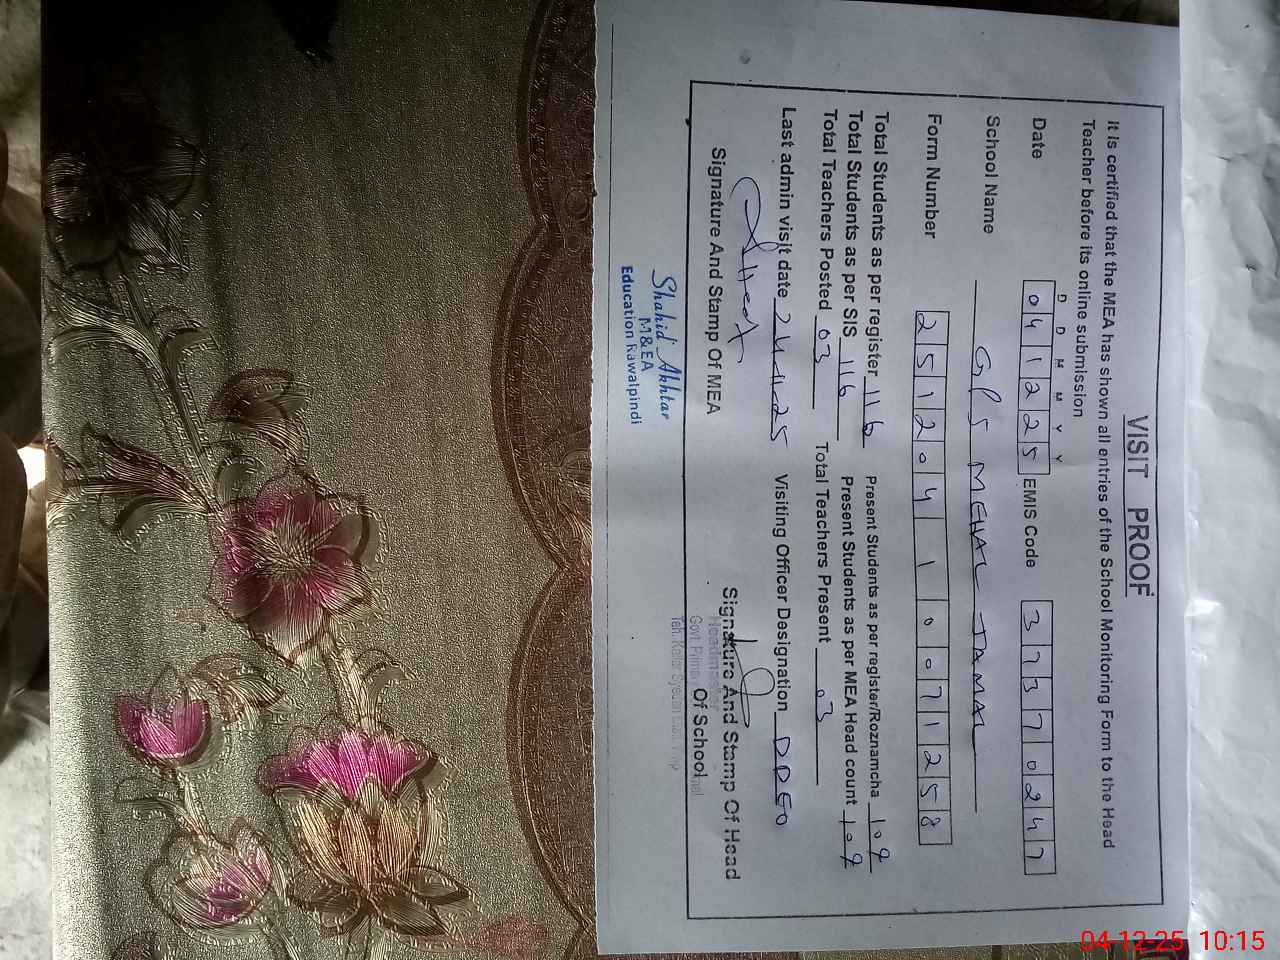 VISIT PROOF
It is certified that the MEA has shown all entries of the School Monitoring Form to the Head
Teacher before its online submission
D D M M Y Y
Date 0 4 1 2 2 5 EMIS Code 3 7 3 7 0 2 4 7
School Name GPS MEHAL JAMAL
Form Number 2 5 1 2 0 4 1 0 0 7 1 2 5 8
Total Students as per register 116 Present Students as per register/Roznamcha 109
Total Students as per SIS 116 Present Students as per MEA Head count 109
Total Teachers Posted 03 Total Teachers Present 03
Last admin visit date 24-11-25 Visiting Officer Designation DDEO
Signature And Stamp Of MEA
Signature And Stamp Of Head
Of School
Headmaster
Govt. Primary
Shahid Akhtar
M&EA
Education Rawalpindi
04-12-25 10:15